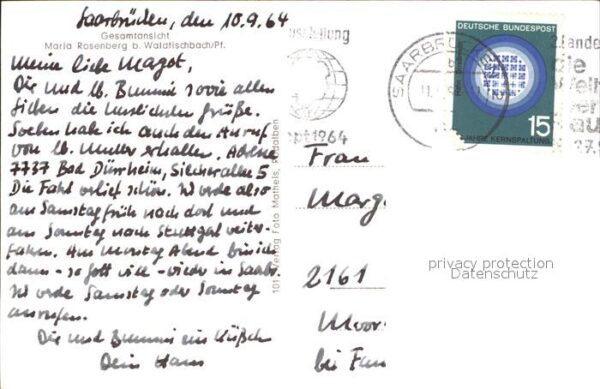 Saarbrücken, den 10.9.64
Gesamtansicht
Maria Rosenberg b. Waldfischbach/Pf.
Meine liebe Magot,
Dir und lb. Bummi sowie allen
lieben die herzlichsten Grüße.
Soeben habe ich auch den Anruf
von lb. Mutter erhalten. Adresse
7737 Bad Dürrheim, Silcherallee 5
Die Fahrt verlief schön. Ich werde also
am Samstag früh nach dort und
am Sonntag nach Stuttgart weiter-
fahren. Am Montag Abend bin ich
dann - so Gott will - wieder in Saarbr.
Ich werde Samstag oder Sonntag
anrufen.
Dir und Bummi ein Küßchen
Dein Hans
101 Verlag Foto Matheis, Rodalben
sstellung
ept 1964
SAARBRÜ
DEUTSCHE BUNDESPOST
15
JAHRE KERNSPALTUNG
2. Lande
die
Frau
Marg
2161
Moor
bei
privacy protection
Datenschutz